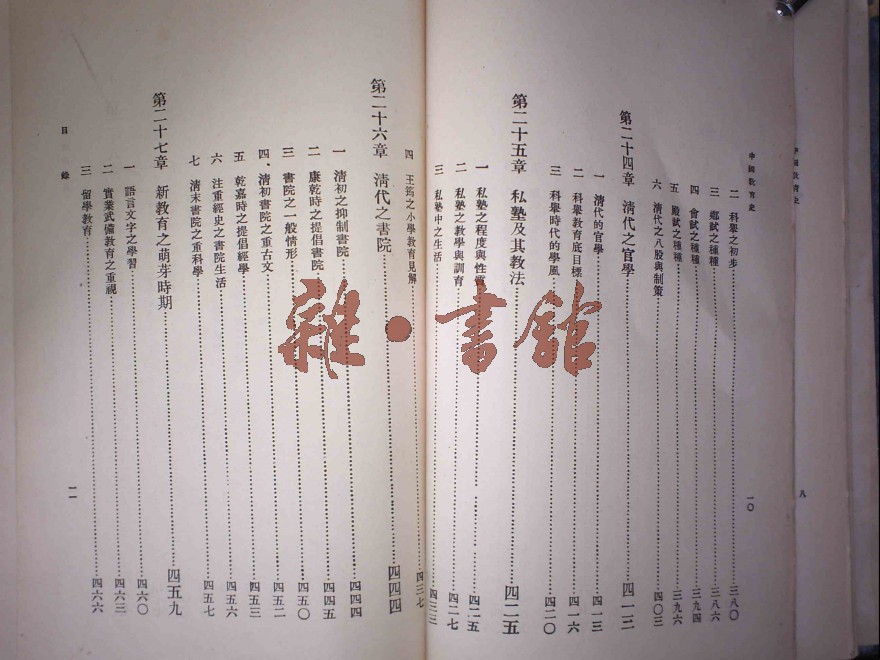 中國敎育史
八
中國敎育史
一〇
二 科舉之初步 三八〇
三 鄉試之種種 三八六
四 會試之種種 三九四
五 殿試之種種 三九六
六 清代之八股與制策 四〇三
第二十四章 清代之官學 四一三
一 清代的官學 四一三
二 科舉敎育底目標 四一六
三 科舉時代的學風 四二〇
第二十五章 私塾及其敎法 四二五
一 私塾之程度與性質 四二五
二 私塾之敎學與訓育 四二七
三 私塾中之生活 四三三
四 王筠之小學敎育見解 四三七
第二十六章 清代之書院 四四四
一 清初之抑制書院 四四四
二 康乾時之提倡書院 四四五
三 書院之一般情形 四五〇
四、清初書院之重古文 四五二
五 乾嘉時之提倡經學 四五三
六 注重經史之書院生活 四五六
七 清末書院之重科學 四五七
第二十七章 新敎育之萌芽時期 四五九
一 語言文字之學習 四六〇
二 實業武備敎育之重視 四六三
三 留學敎育 四六六
目錄
一一
雜·書館